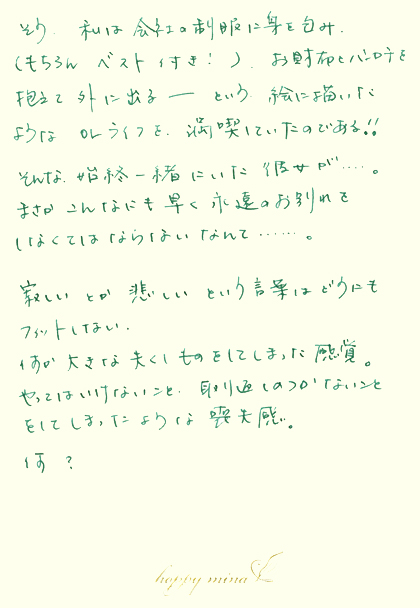 そう、私は会社の制服に身を包み、
(もちろん ベスト付き! )、お財布とハンカチを
抱えて外に出る ── という 絵に描いた
ような OLライフを、満喫していたのである!!
そんな、始終一緒にいた 彼女が‥‥。
まさか こんなにも 早く 永遠のお別れを
しなくてはならないなんて……。
寂しい とか 悲しい という言葉はどうにも
フィットしない、
何か 大きな失くしものをしてしまった感覚。
やってはいけないこと、取り返しのつかないこと
をしてしまったような 喪失感。
何 ?
happy mina